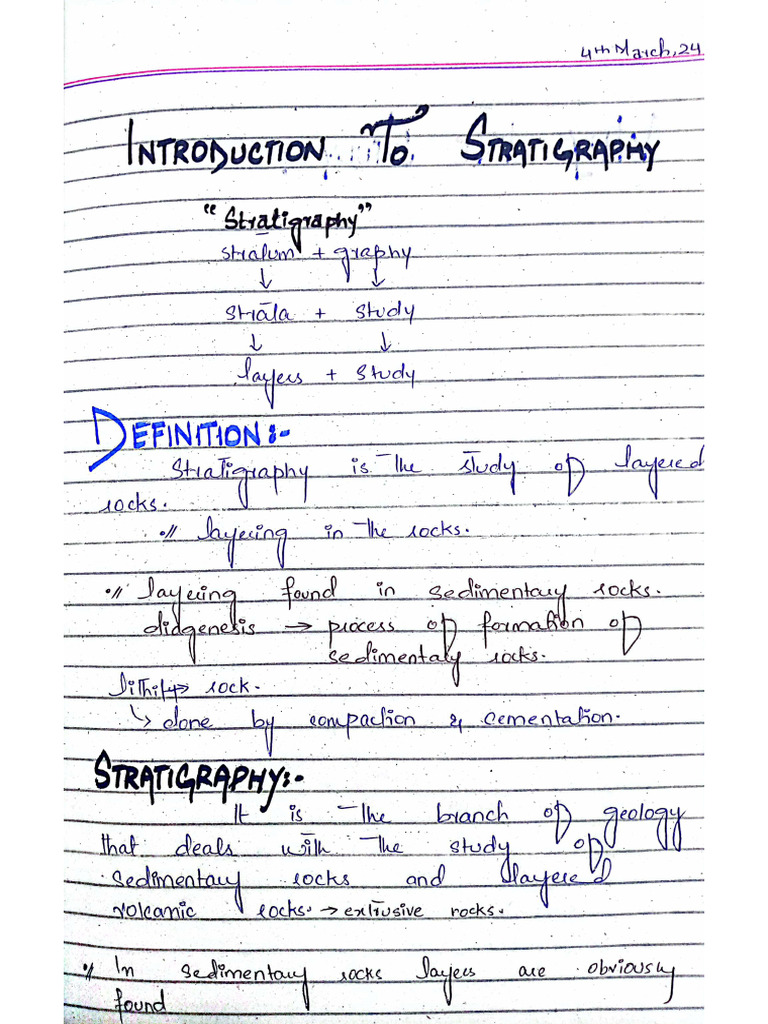 4th March, 24
INTRODUCTION TO STRATIGRAPHY
"Stratigraphy"
stratum + graphy
↓ ↓
strata + study
↓ ↓
layers + study
DEFINITION:-
Stratigraphy is the study of layered
rocks.
·// layering in the rocks.
·// layering found in sedimentary rocks.
didgenesis → process of formation of
sedimentary rocks.
lithify → rock.
↳ done by compaction & cementation.
STRATIGRAPHY:-
It is the branch of geology
that deals with the study of
sedimentary rocks and layered
volcanic rocks. → extrusive rocks.
·// In sedimentary rocks layers are obviously
found